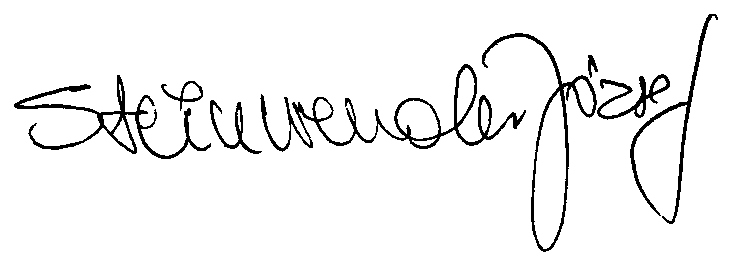 Steinwender József